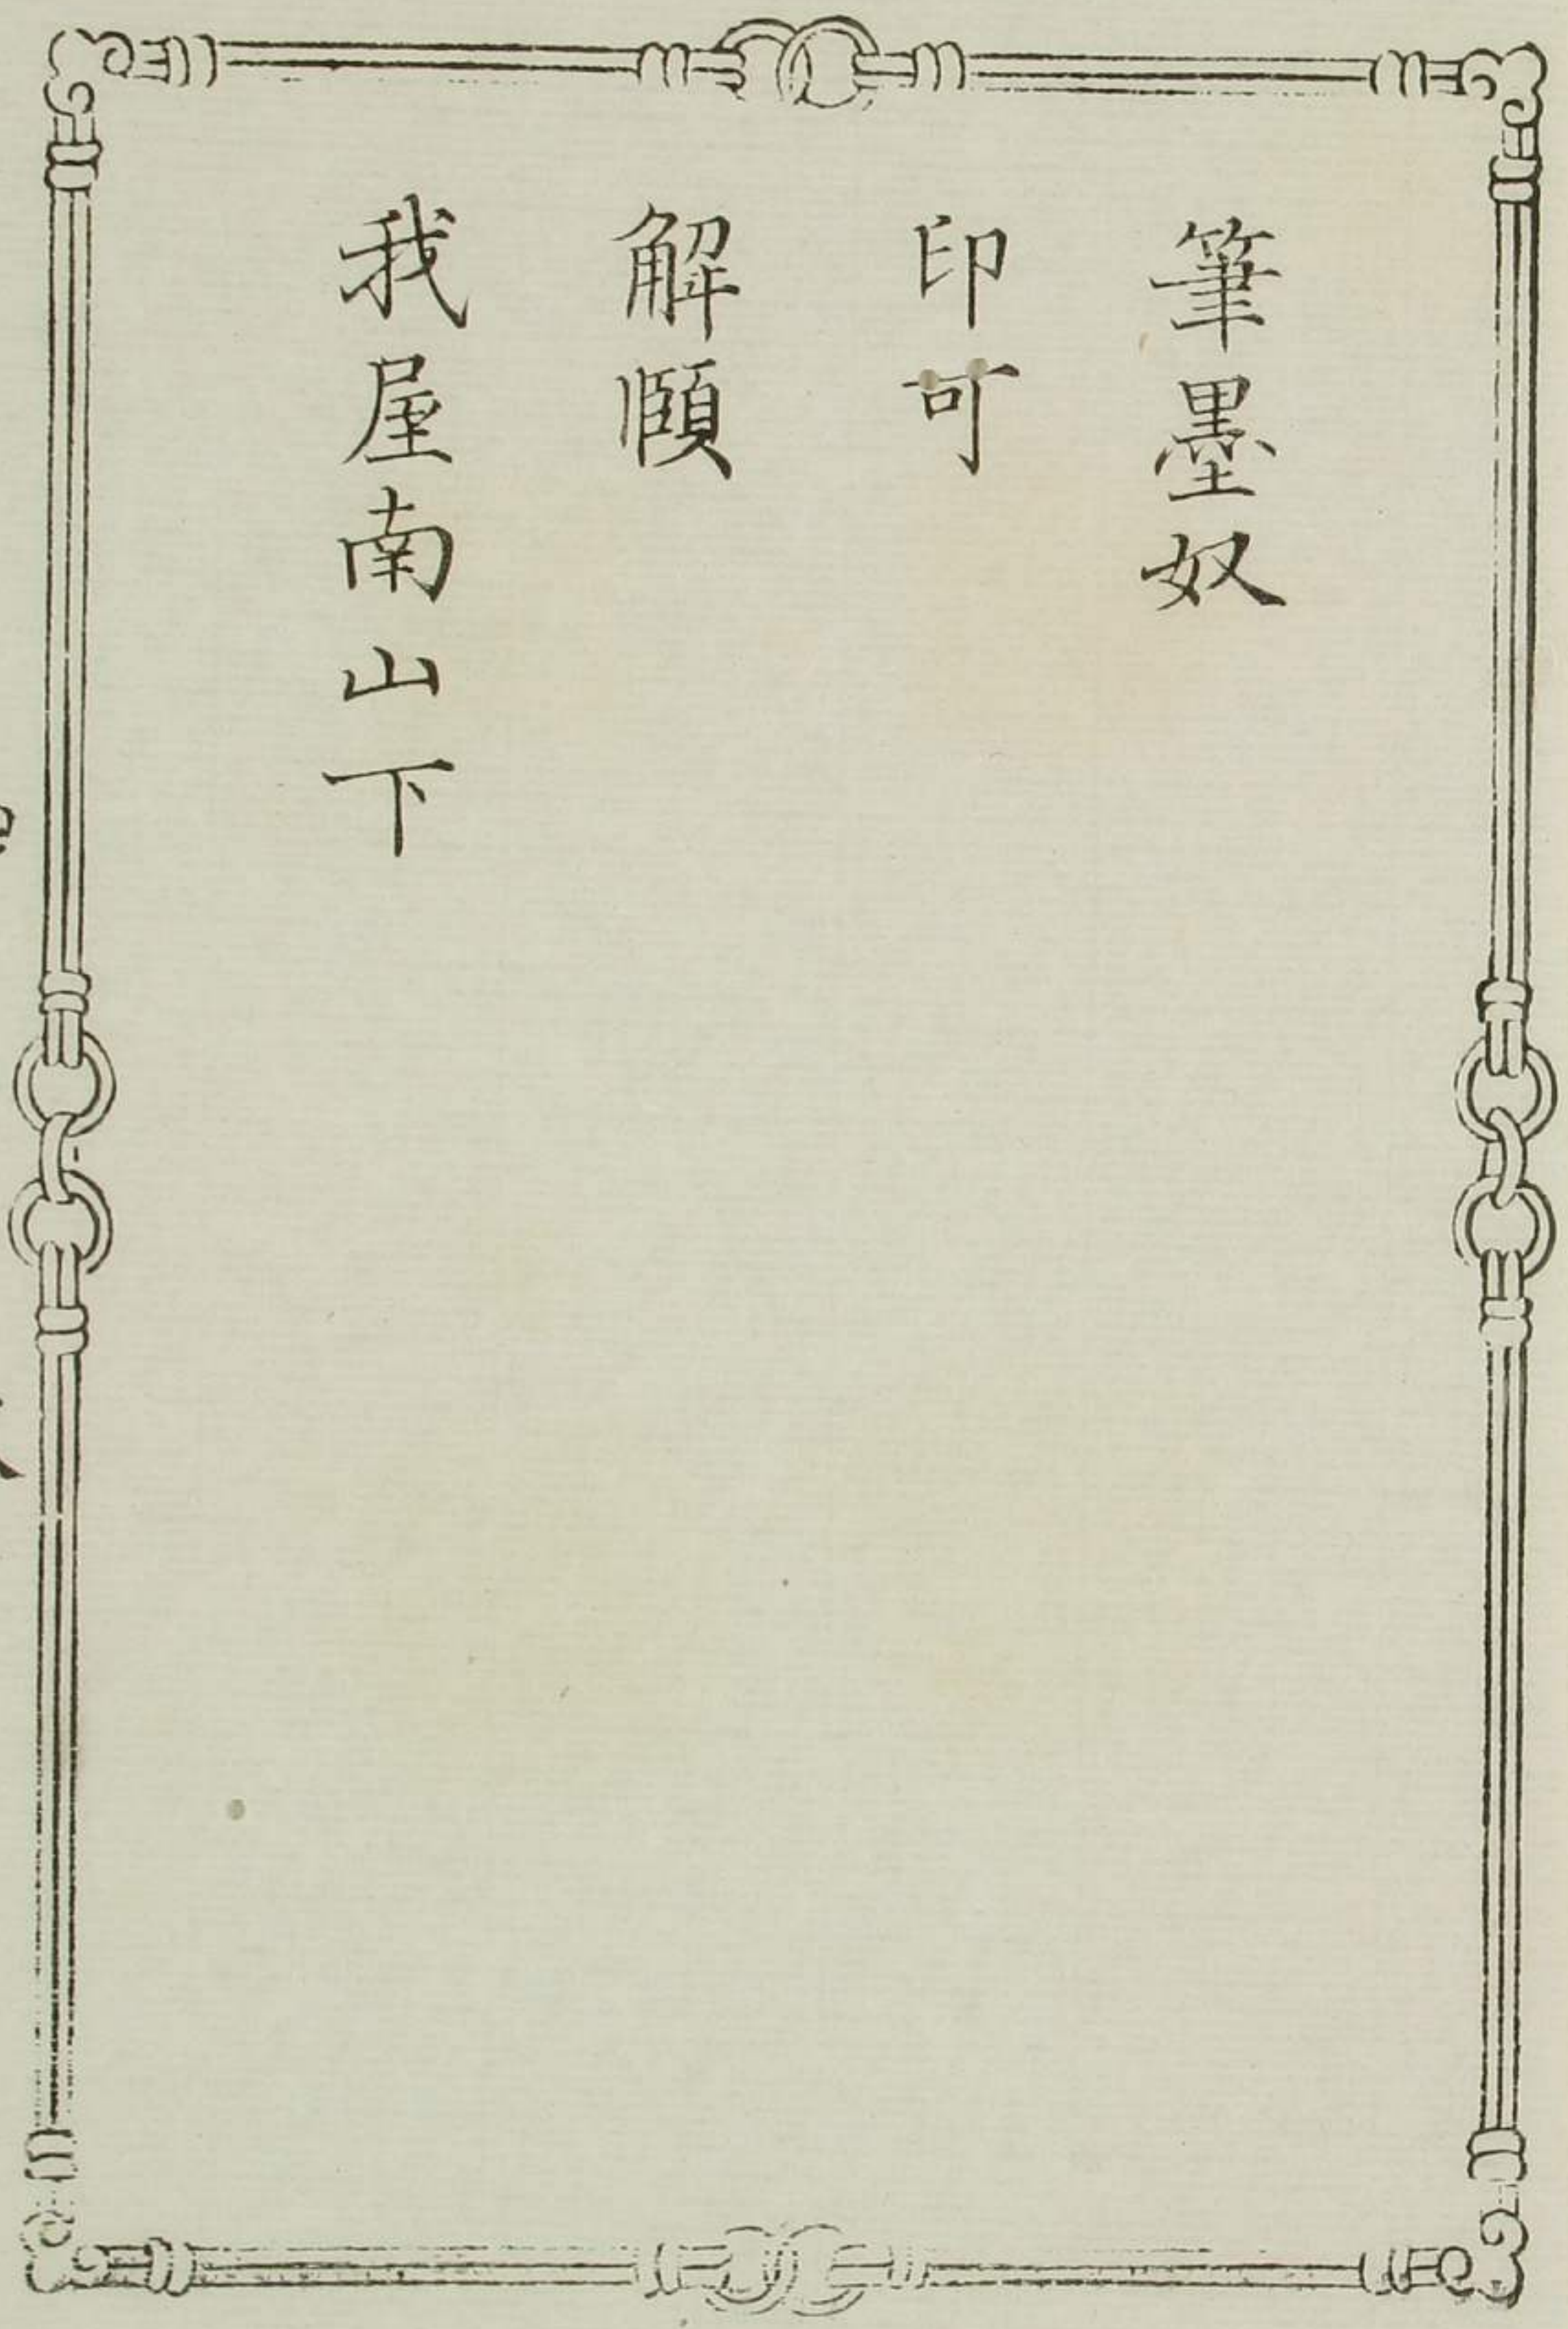 筆墨奴
印可
解頤
我屋南山下